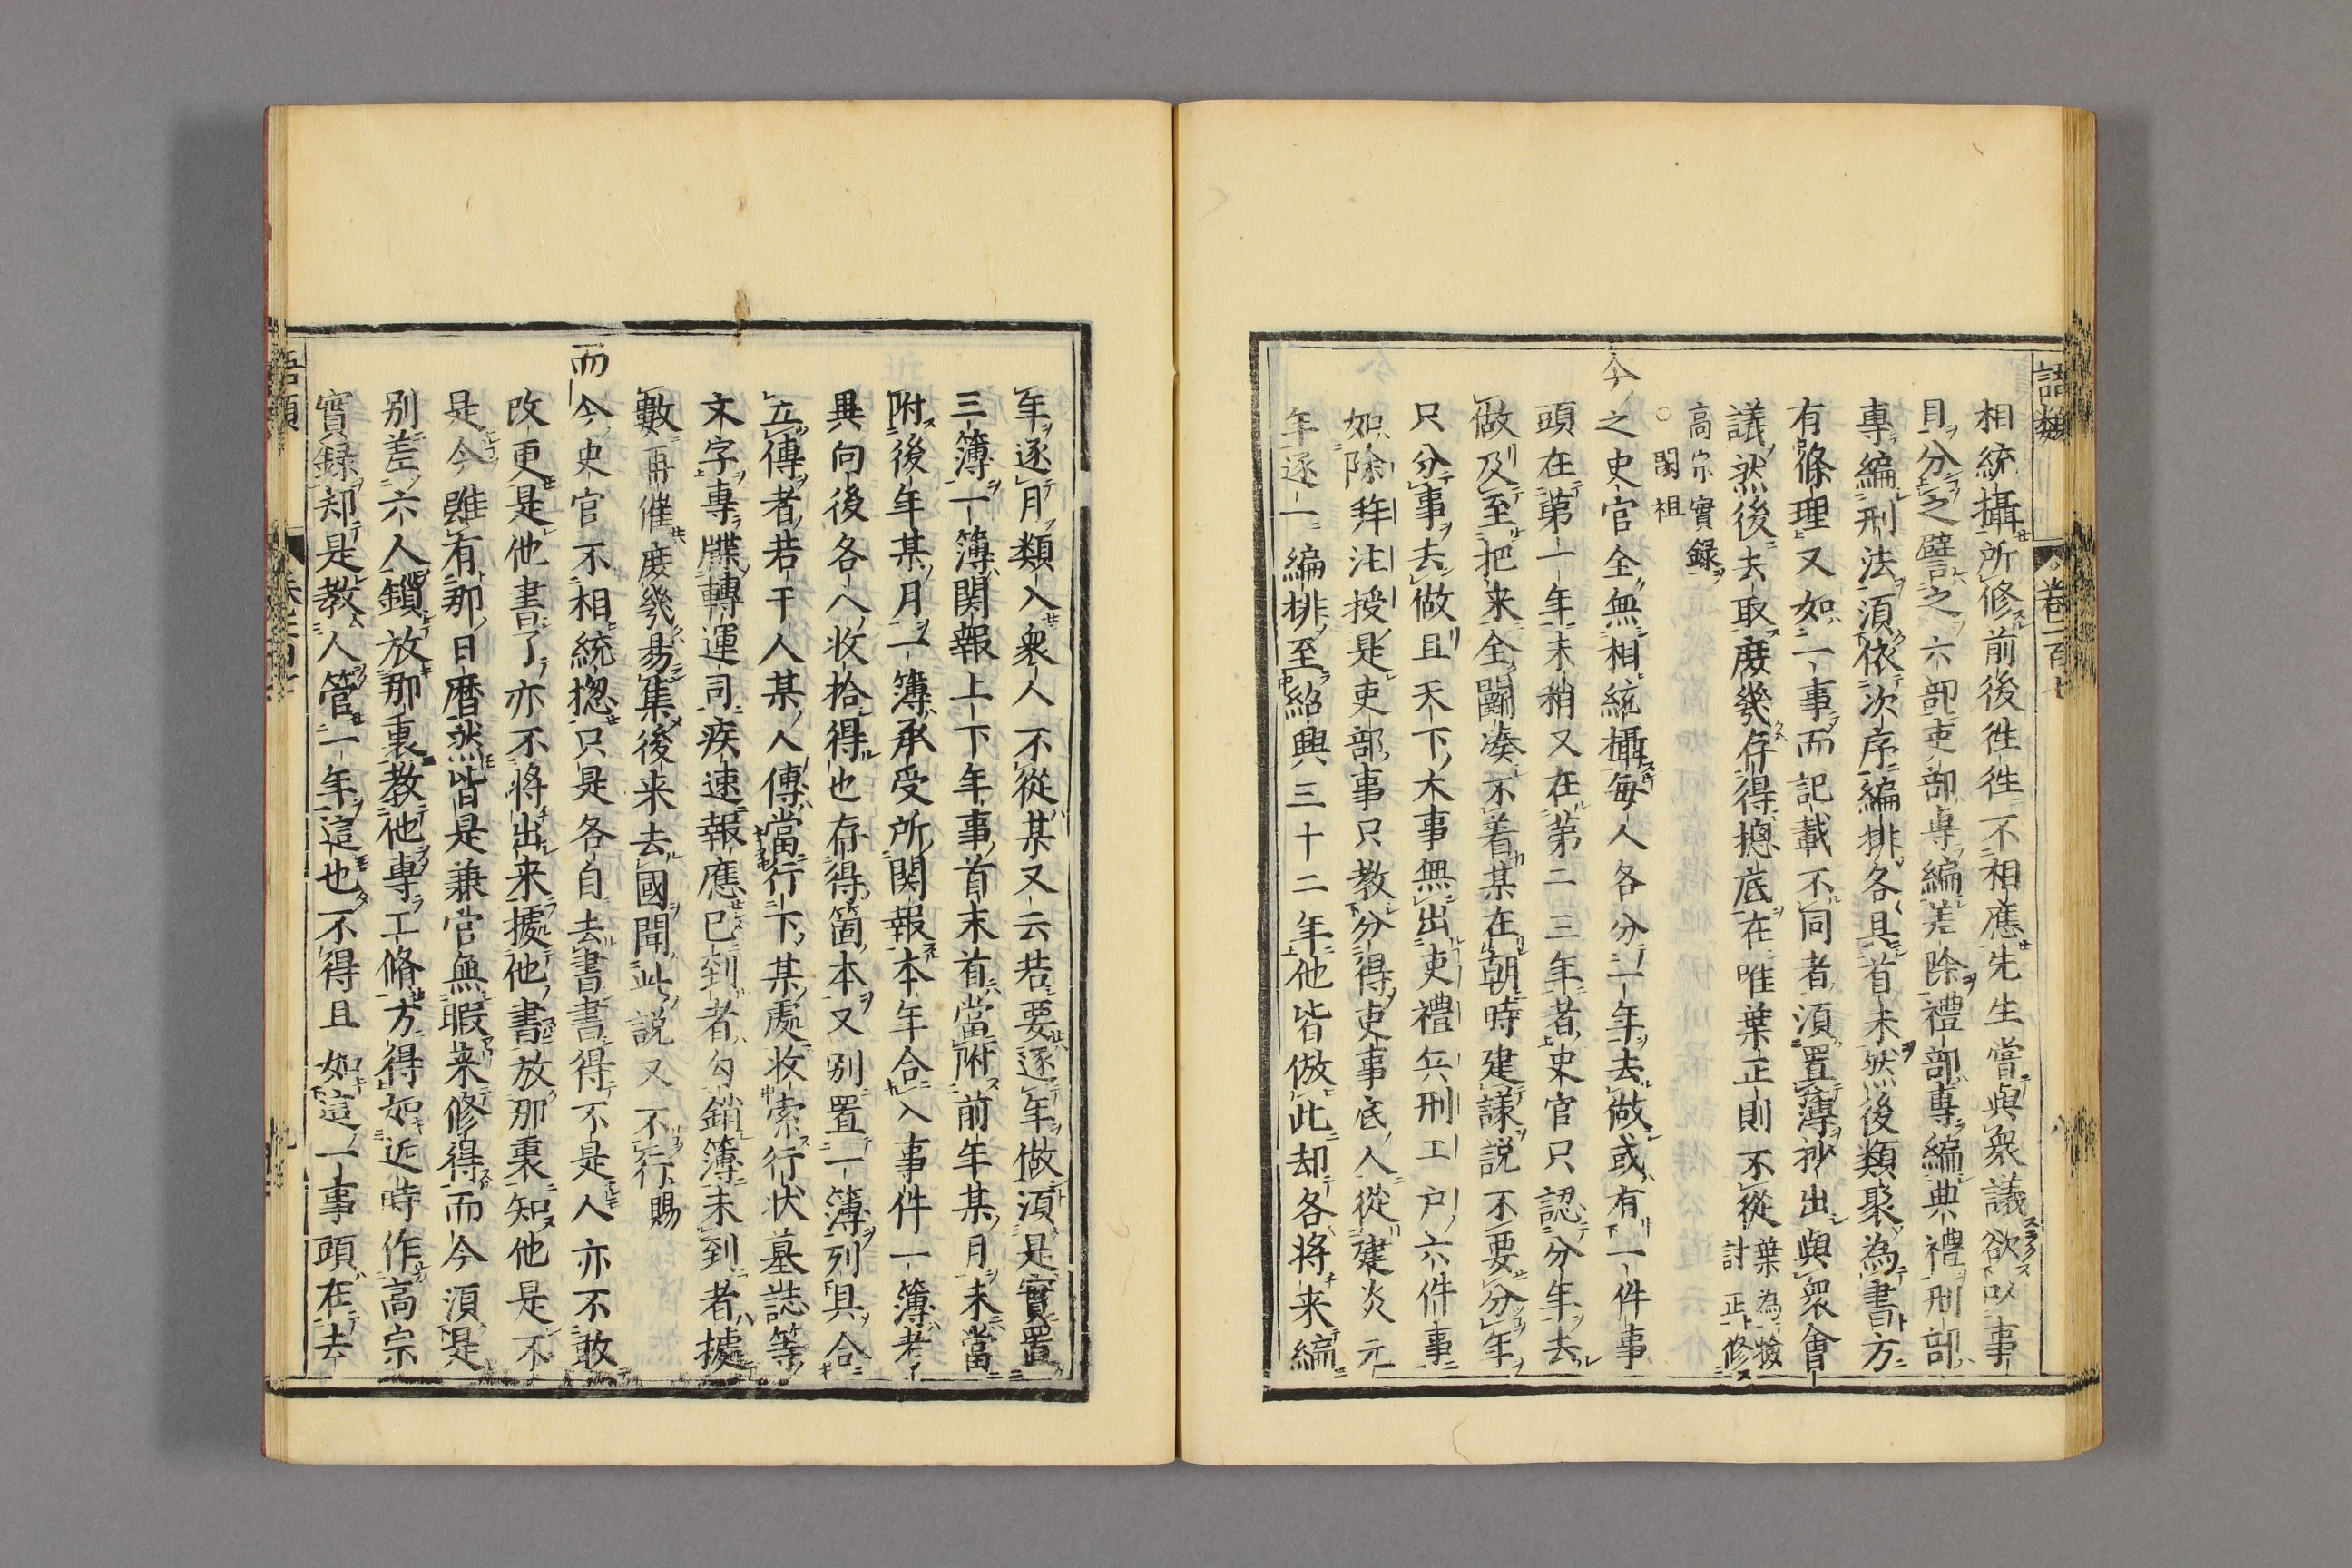 語類
卷一百七
相統攝所修前後徃徃不相應先生嘗與衆議欲以事
目分之譬之六部吏部專編差除禮部專編典禮刑部
專編刑法須依次序編排各具首末然後類聚為書方
有條理又如一事而記載不同者須置簿抄出與衆會
議然後去取庶幾存得摠底在唯葉正則不從葉為檢討正修
高宗實録
○閎祖
今之史官全無相統攝每人各分一年去做或有一件事
頭在第一年末稍又在第二三年者史官只認分年去
做及至把来全鬭凑不着某在朝時建議説不要分年
只分事去做且天下大事無出吏禮兵刑工户六件事
如除拜注授是吏部事只教分得吏事底人從建炎元
年逐一編排至紹興三十二年他皆倣此却各将来編
年逐月類入衆人不從某又云若要逐年做須是實置
三簿一簿関報上下年事首末首當附前年某月末當
附後年某月一簿承受所関報本年合入事件一簿考
異向後各人收拾得也存得箇本又别置一簿列具合
立傳者若干人某人傳當行下某處收索行状墓誌等
文字專牒轉運司疾速報應已到者勾銷簿未到者據
數再催庶幾易集後来去國聞此説又不行賜
而今史官不相統揔只是各自去書書得不是人亦不敢
改更是他書了亦不将出来據他書放那裏知他是不
是今雖有那日暦然皆是兼官無暇来修得而今須是
别差六人鎻放那裏教他專工脩方得如近時作高宗
實録却是教人管一年這也不得且如這一事頭在去
語類